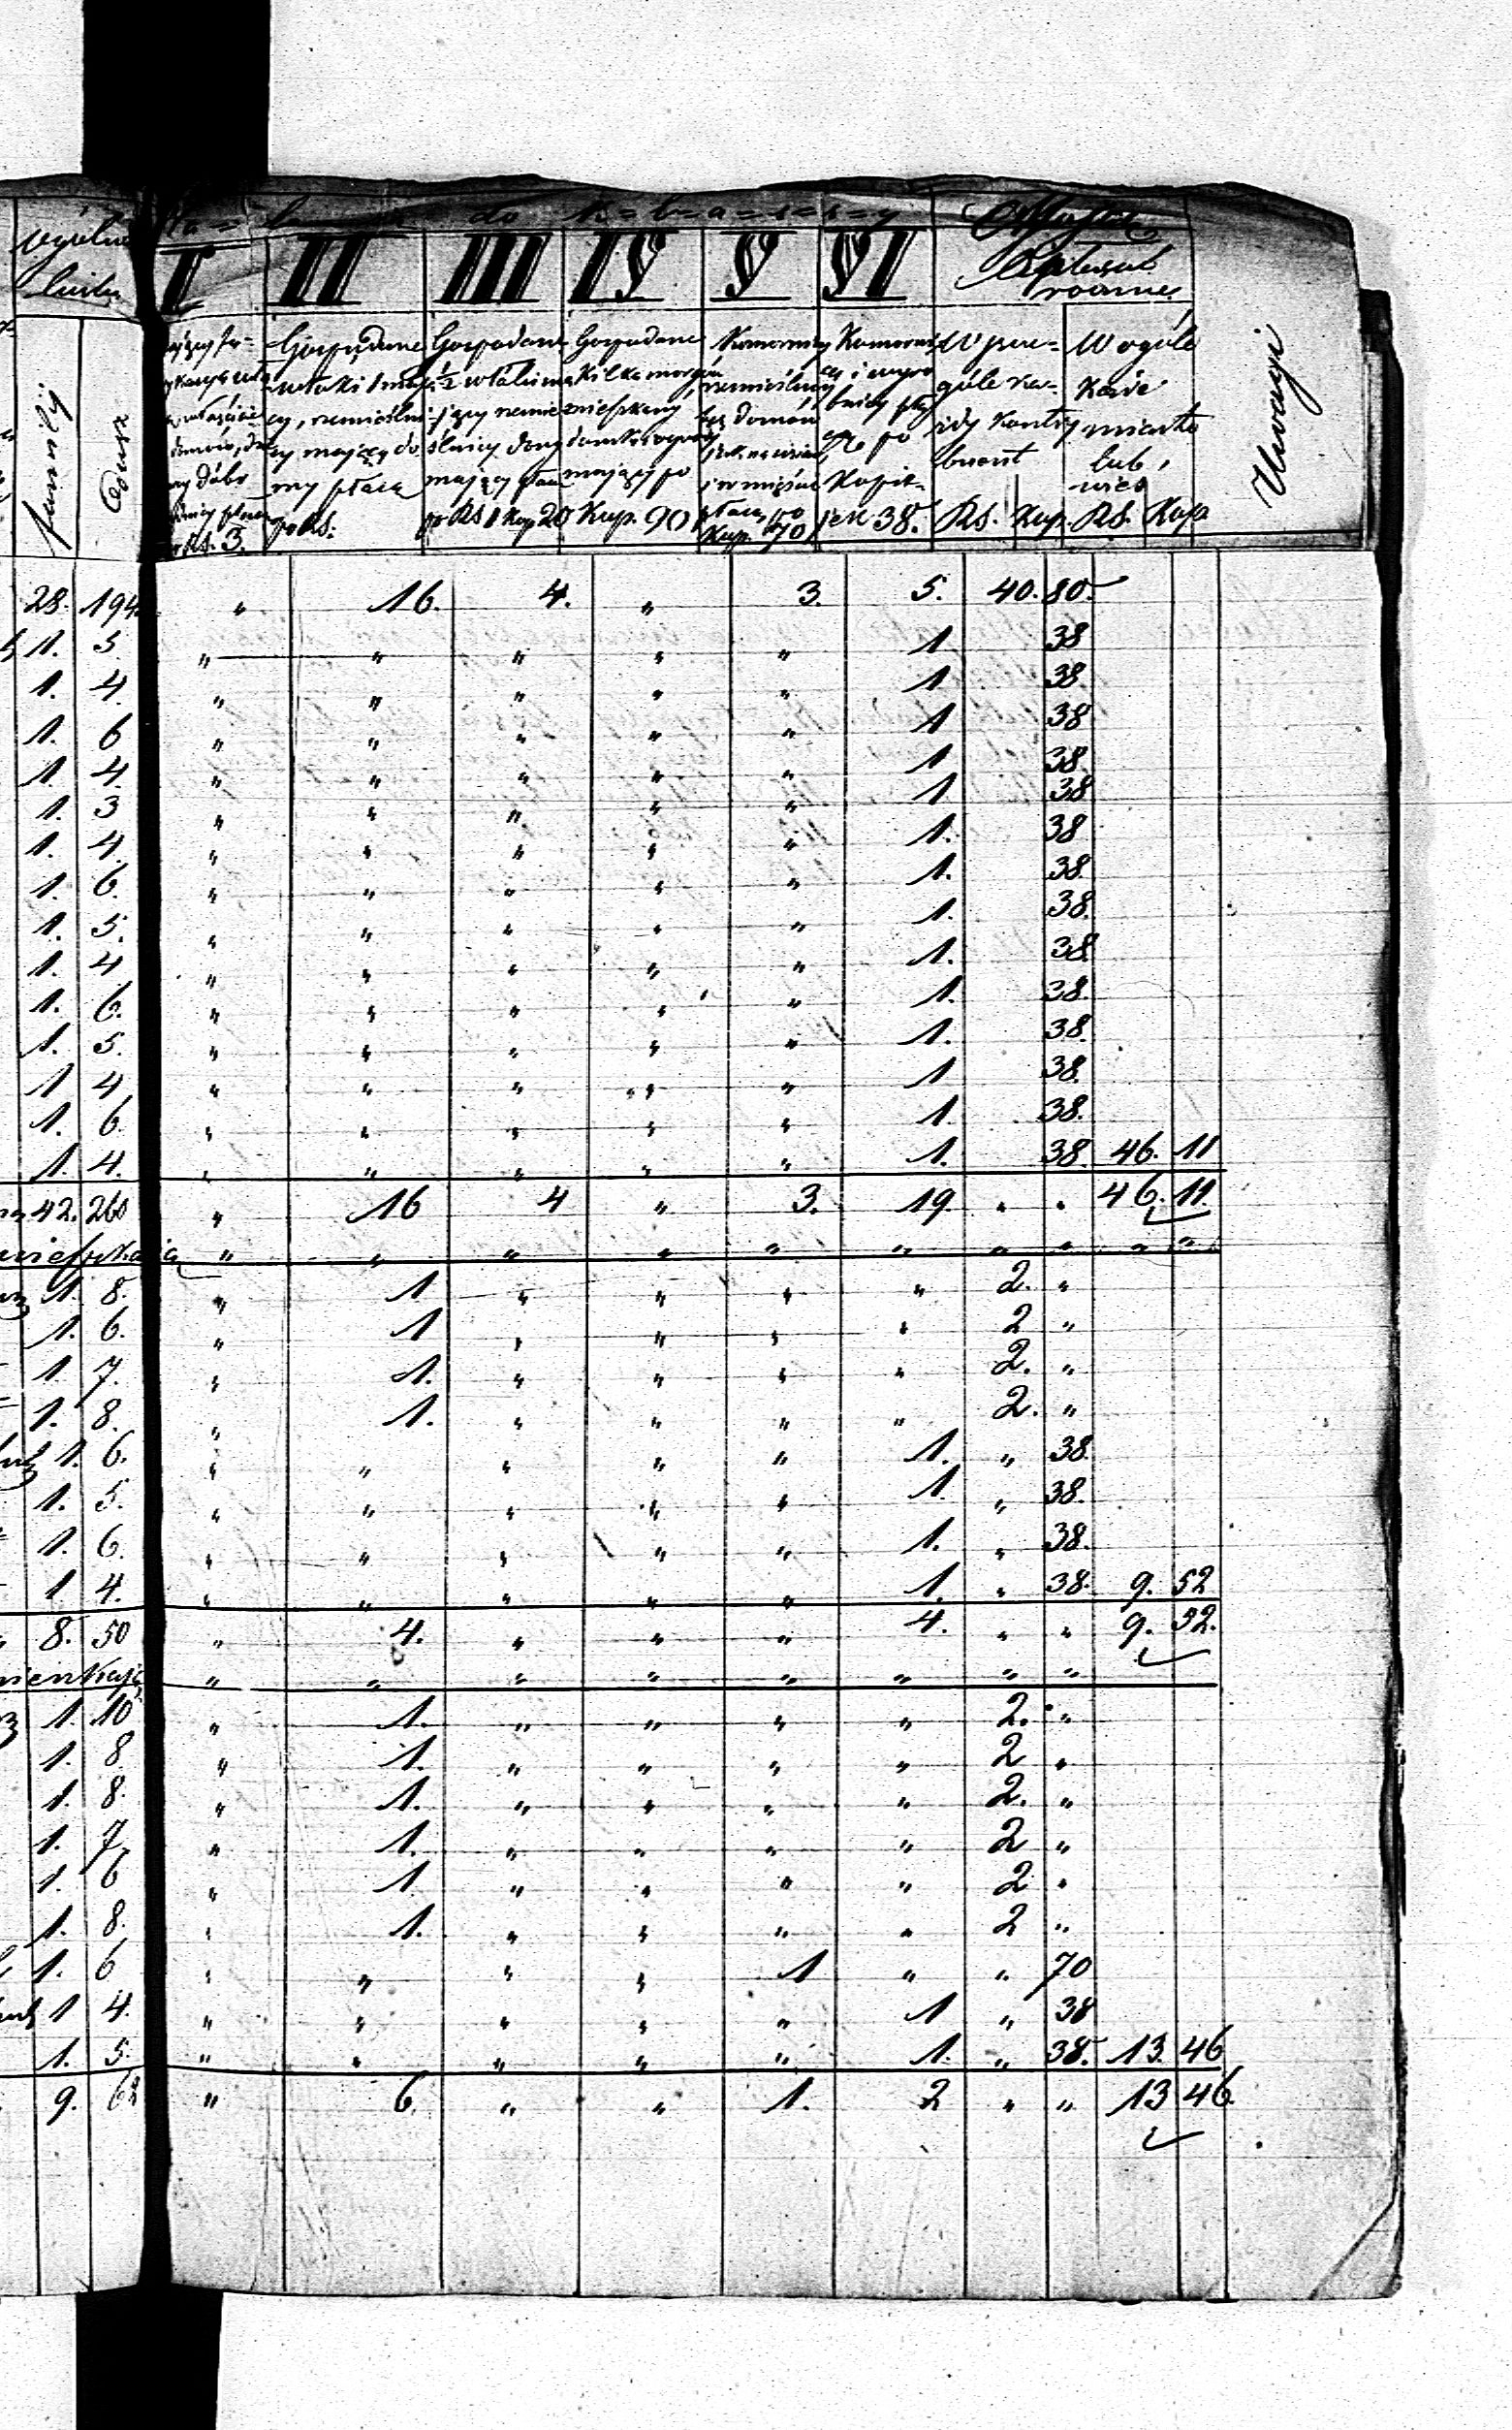 do K=l=a=s=s=y
I II III IV V VI
familij
Dusz
Gospodarze
włóki 1 mają
cy, rzemieślni
cy mający do
my płacą
po RS.
Gospodarze
½ włóki ma
jący rzemie
ślnicy domy
mający płacą
po RS 1 Kop 20
Gospodarze
Kilka morgów
mający po
Kop. 90
Komornicy
rzemieślnicy
bez domów
płacą po
Kop. 70
Komorni
cy i wyro
bnicy pła
cą po
Kopie
jek 38.
W szcze=
góle ka=
żdy kontry
buent
RS. Kop.
W ogóle
każde
miasto
lub
wieś
RS. Kop.
Uwagi
28. 194 " 16. 4. " 3. 5. 40. 80.
1. 5. " " " " " 1. 38
1. 4. " " " " " 1. 38.
1. 6 " " " " " 1 38
1. 4. " " " " " 1 38.
1. 3 " " " " " 1 38
1. 4. " " " " " 1. 38
1. 6. " " " " " 1. 38.
1. 5. " " " " " 1. 38.
1. 4 " " " " " 1. 38.
1. 6. " " " " " 1. 38.
1. 5. " " " " " 1. 38.
1 4 " " " " " 1 38.
1. 6. " " " " " 1. 38.
1. 4. " " " " " 1. 38. 46. 11
42. 260 " 16 4 " 3. 19 " " 46. 11.
" " " " " " " " " "
1. 8. " 1 " " " " 2. "
1. 6. " 1 " " " " 2 "
1. 7. " 1. " " " " 2. "
1. 8. " 1. " " " " 2. "
1. 6. " " " " " 1. " 38.
1. 5. " " " " " 1. " 38.
1. 6. " " " " " 1. " 38.
1 4. " " " " " 1. " 38. 9. 52
8. 50 " 4. " " " 4. " " 9. 52.
" " " " " " " "
1. 10 " 1. " " " " 2. "
1. 8 " 1. " " " " 2 "
1. 8. " 1. " " " " 2. "
1. 7. " 1. " " " " 2 "
1. 6 " 1 " " " " 2 "
1. 8. " 1. " " " " 2 "
1. 6 " " " " 1 " " 70
1 4. " " " " " 1 " 38
1. 5. " " " " " 1. " 38. 13. 46
9. 62 " 6. " " 1. 2 " " 13 46.